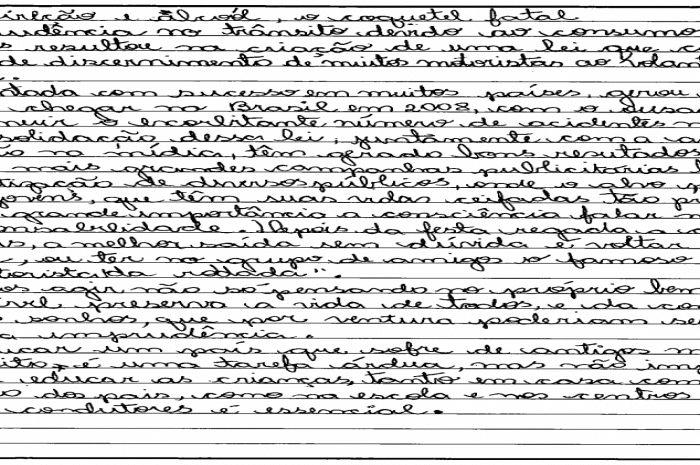 ireção e álcool, o coquetel fatal
udência no trânsito devido ao consumo
s resultou na criação de uma lei que
de discernimento de muitos motoristas ao volan
tada com sucesso em muitos países, gerou
chegar no Brasil em 2008, com o
nuir o exorbitante número de acidentes
solidação dessa lei, juntamente com a
ão na mídia, têm gerado bons resultados
mais grandes campanhas publicitárias
tização de diversos públicos, onde o alvo
jovens, que têm suas vidas ceifadas tão
grande importância a consciência falar
nsabilidade. Depois da festa regada a
is, a melhor saída sem dúvida é voltar
, ou ter no grupo de amigos o famoso
torista da rodada".
os agir não só pensando no próprio bem
ível preserva a vida de todos, e da
e sonhos, que por ventura poderiam se
a imprudência.
ucar um país que sofre de antigos
ito, é uma tarefa árdua, mas não im
educar as crianças, tanto em casa com
o dos pais, como na escola e nos centros
condutores é essencial.